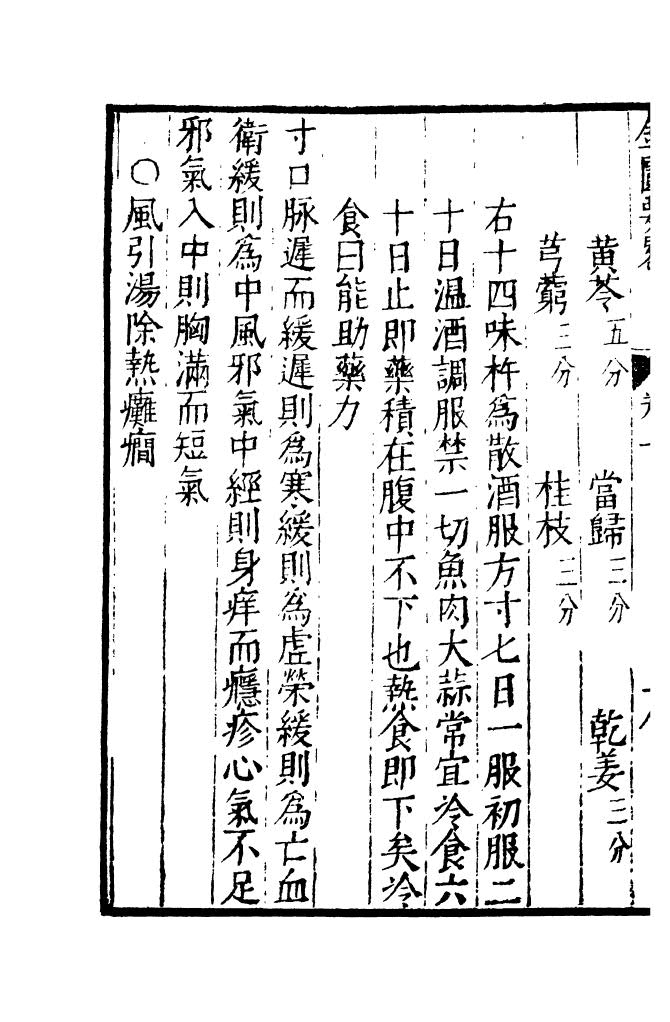 黄芩五分　當歸三分　乾姜三分
芎藭三分　桂枝三分
右十四味杵為散酒服方寸七日一服初服二
十日温酒調服禁一切魚肉大蒜常宜冷食六
十日止即藥積在腹中不下也熱食即下矣冷
食曰能助藥力
寸口脉遲而緩遲則為寒緩則為虛榮緩則為亡血
衛緩則為中風邪氣中經則身痒而癮疹心氣不足
邪氣入中則胸滿而短氣
○風引湯除熱癱癇